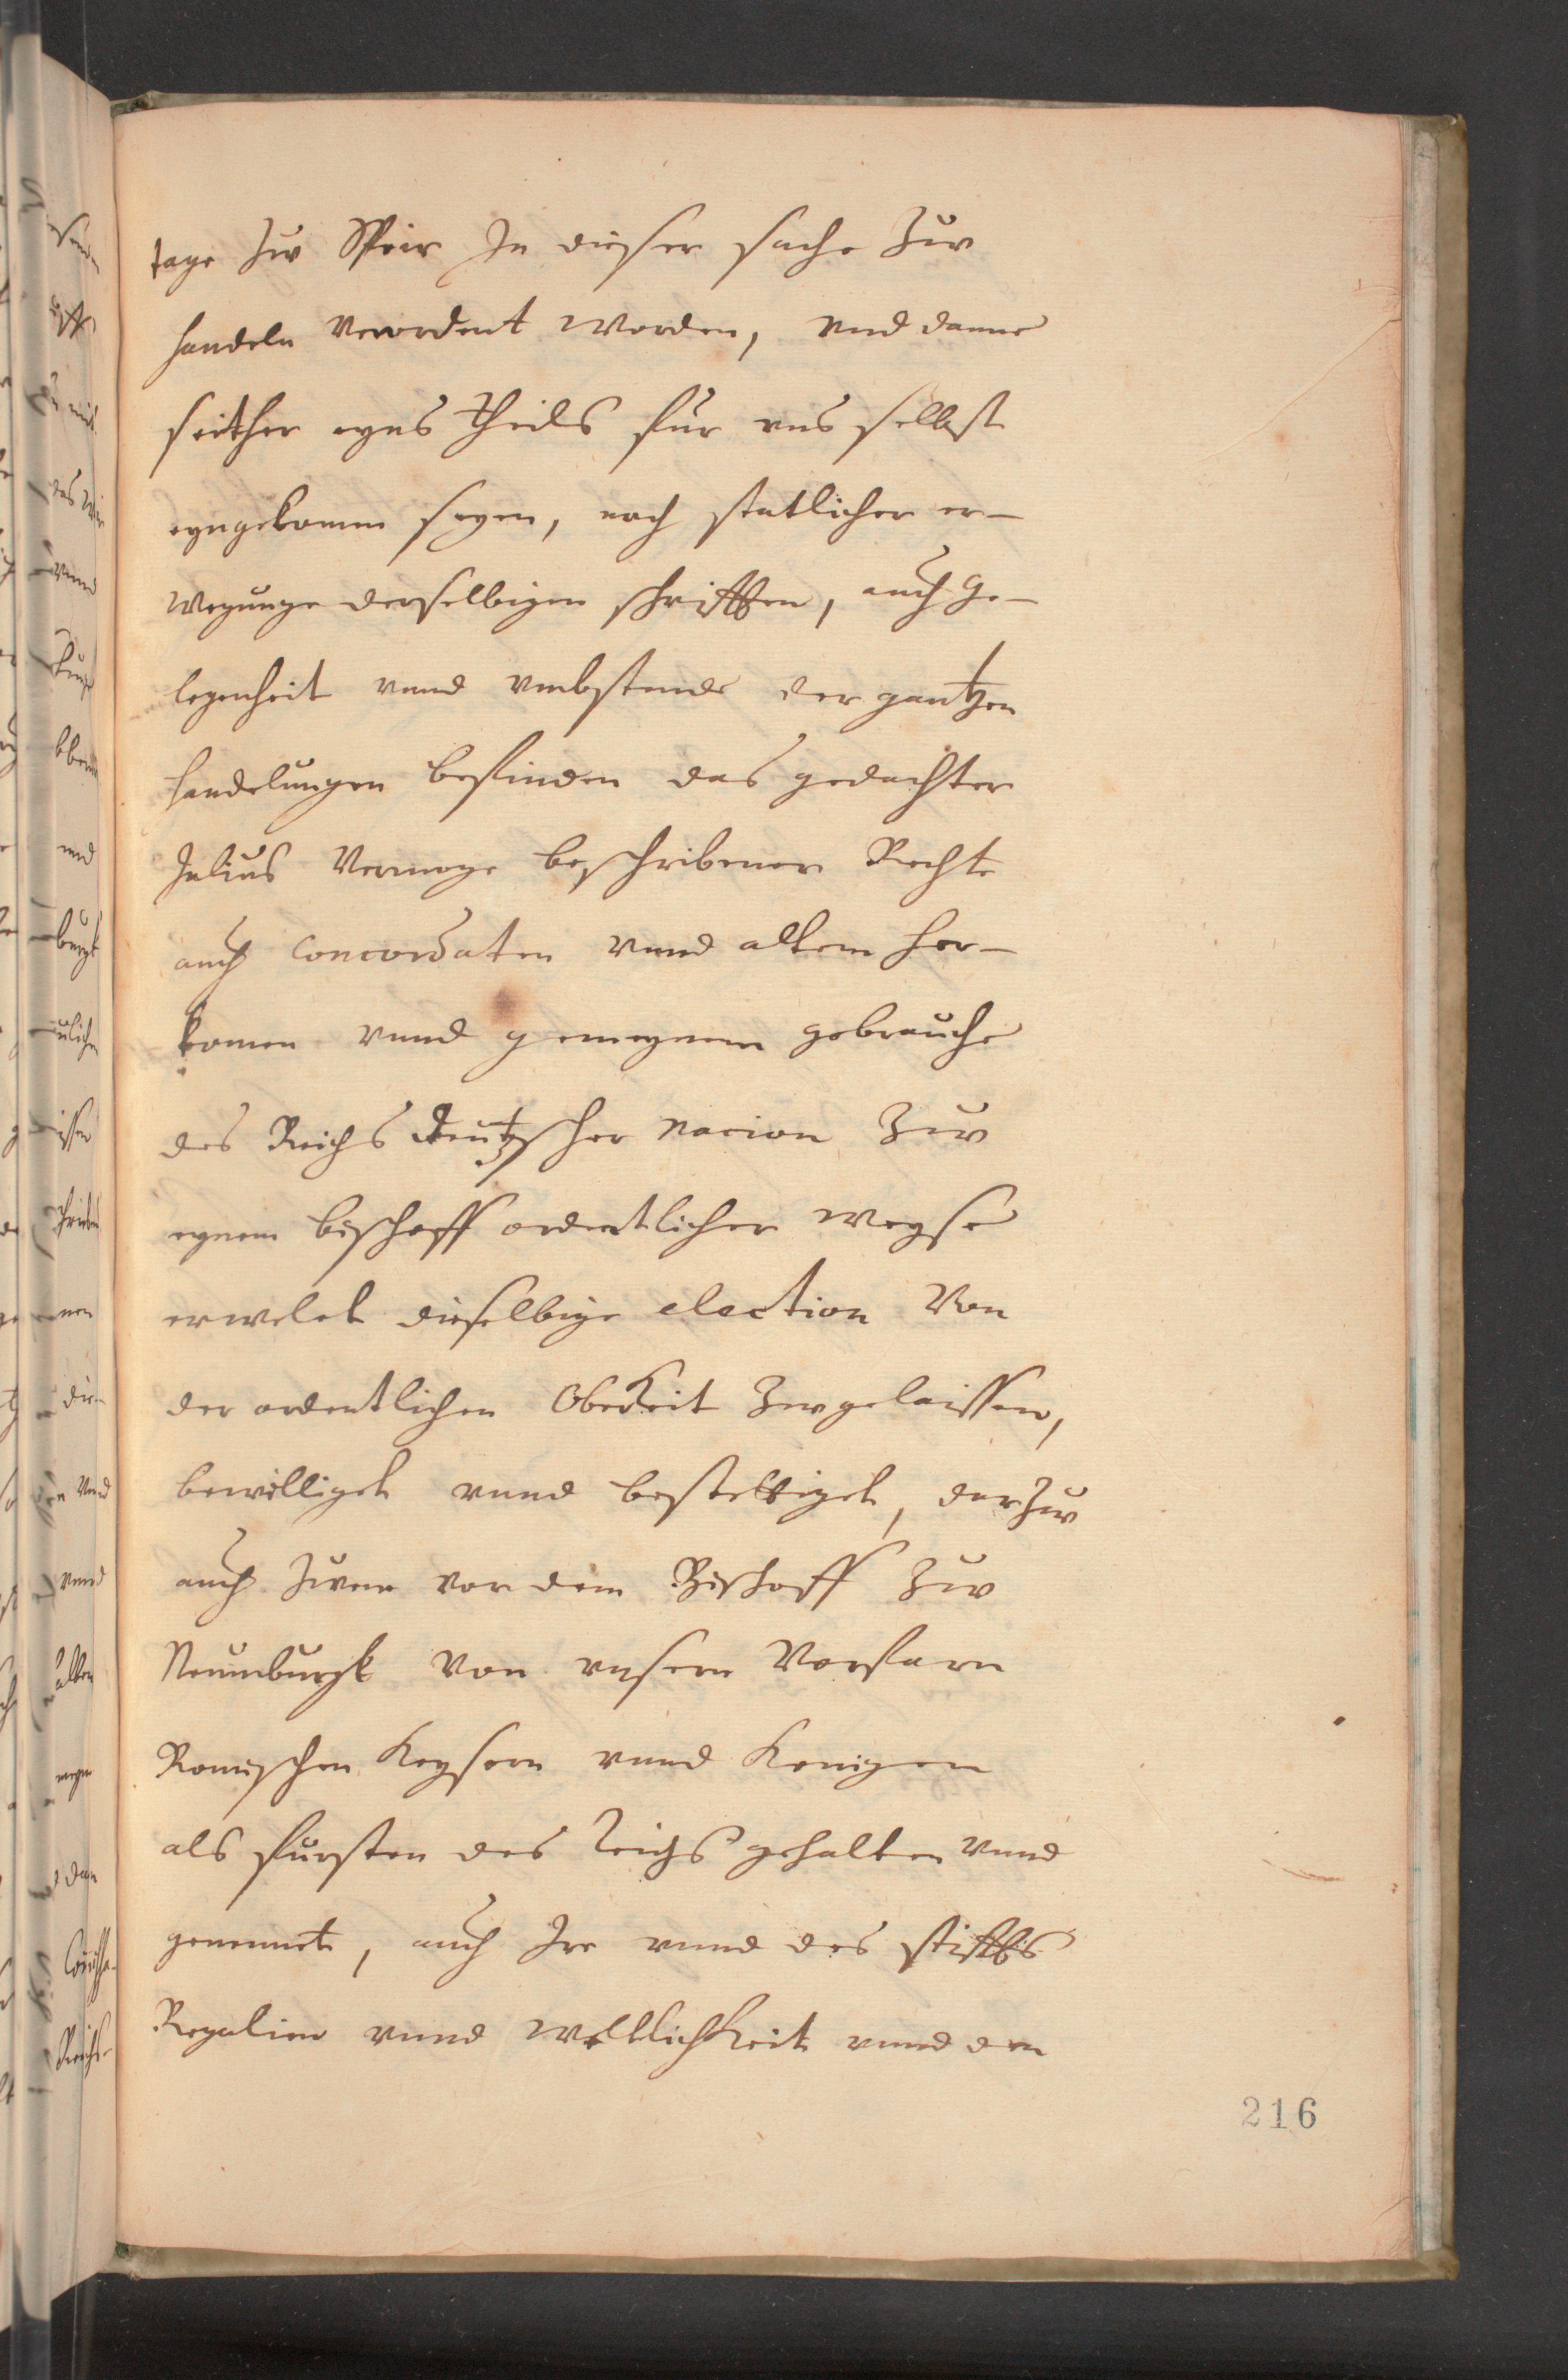 tage zur Speir In dieser sache zuw
handeln verordent worden, vnd danne
seither eyns theils fur vns selbst
eyngekomen seyen, nach statlicher er-
wegunge derselbigen schrifften, auch ge-
legenheit vnnd vmbstende der gantzen
handelungen befinden das gedachter
Julius vermoge beschribener Rechte
auch Concordaten vnnd altem her-
komen vnnd gemeynem gebrauche
des Reichs deutzscher nacion zuw
eynem bischoff ordentlicher weyse
erwelet dieselbige election von
der ordentlichen Oberkeit zugelaissen,
bewilliget vnnd bestettiget, darzuw
auch zuuor von dem Bischoff zuw
Neumburgk von vnsern Vorfarn
Romischen Keysern vnnd Konigen
als fursten des Reichs gehalten vnnd
genennet, auch Ire vnnd des stiffts
Regalien vnnd Weltlichkeit vnnd den
216